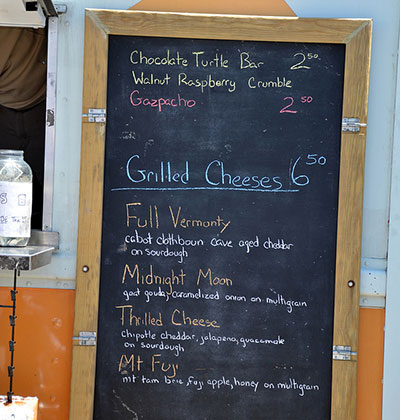 Chocolate Turtle Bar 2.50
Walnut Raspberry Crumble
Gazpacho 2.50
Grilled Cheeses 6.50
Full Vermonty
cabot clothboun cave aged cheddar
on sourdough
Midnight Moon
goat gouda, caramelized onion on multigrain
Thrilled Cheese
chipotle cheddar, jalapeno, guacamole
on sourdough
Mt Fuji
mt tam brie, fuji apple, honey on multigrain